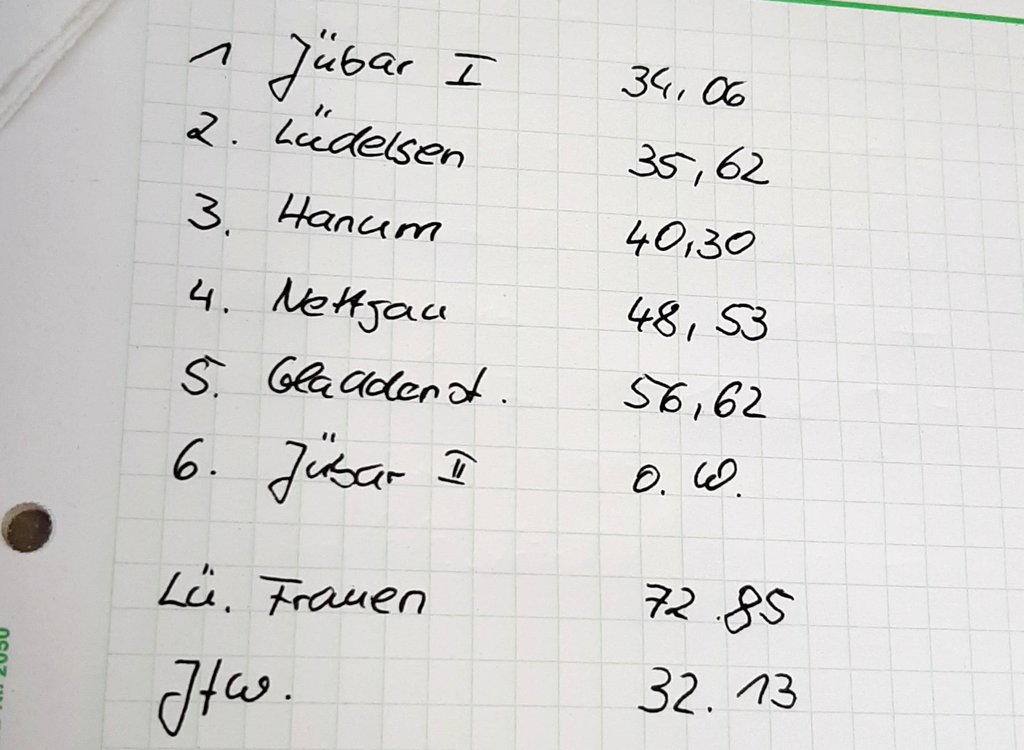 1 Jübar I 34,06
2. Lüdelsen 35,62
3. Hanum 40,30
4. Nettgau 48,53
5. Gladdenst. 56,62
6. Jübar II o. W.
Lü. Frauen 72.85
Jfw. 32.13